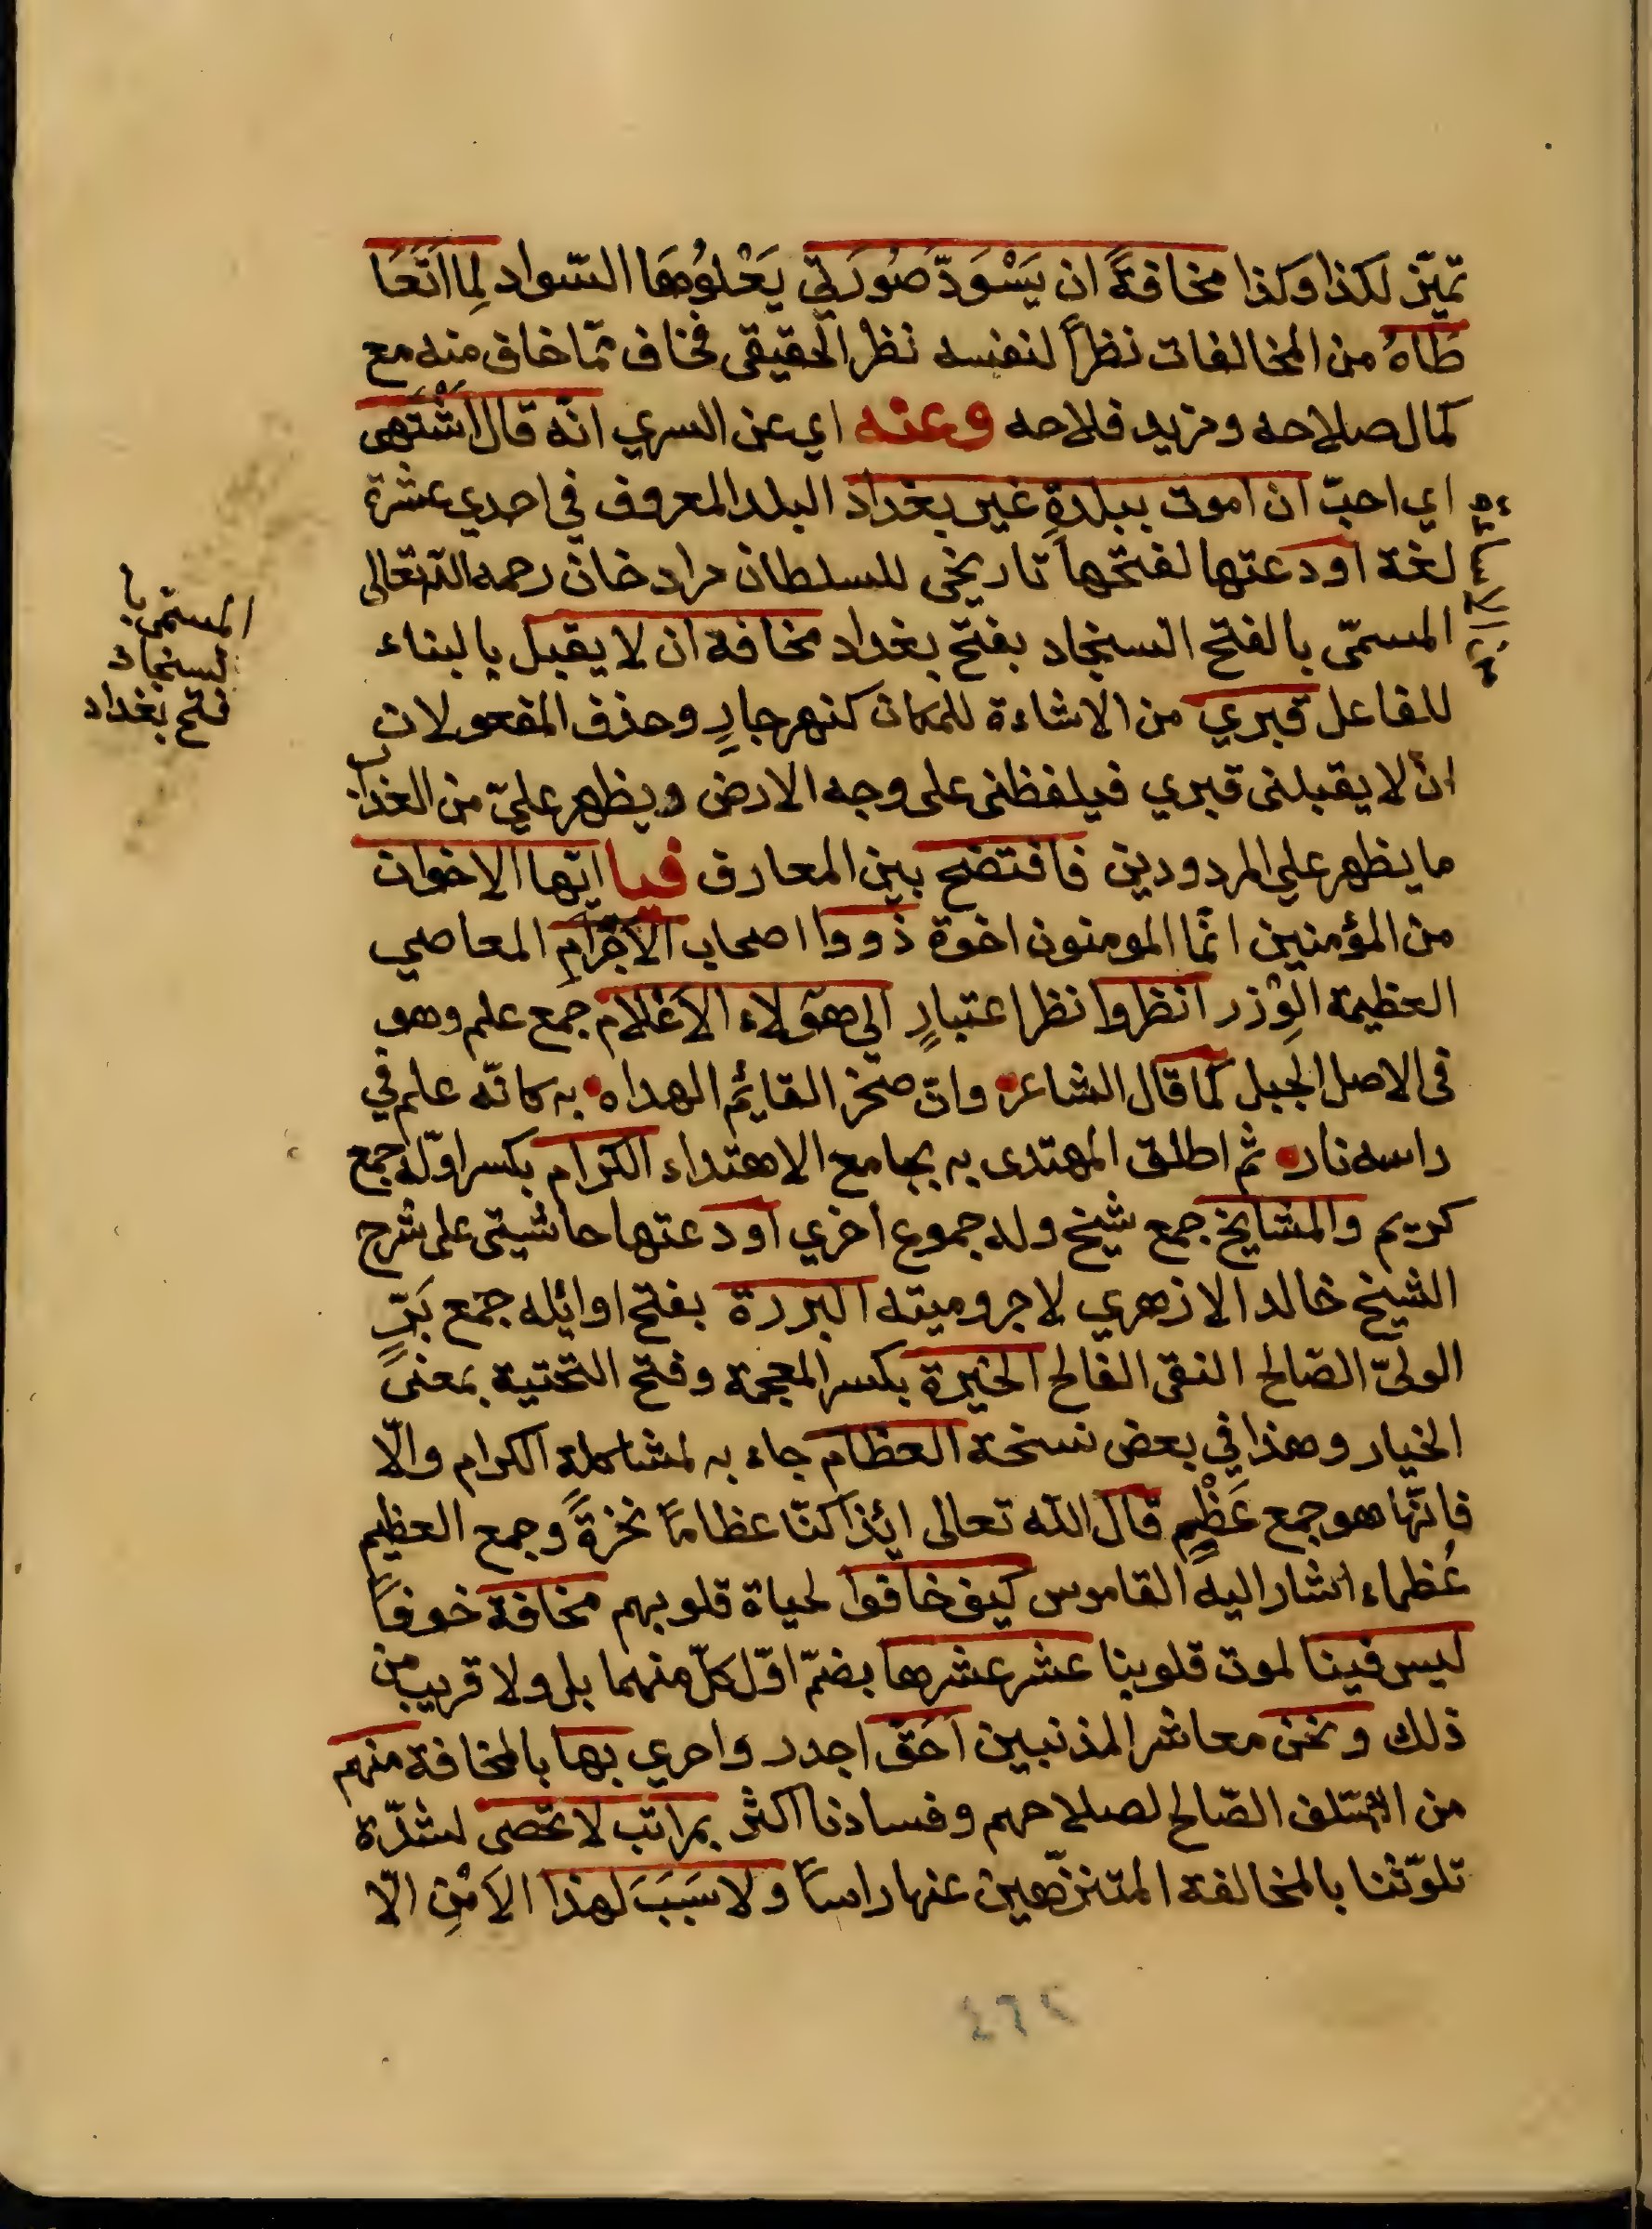 تميّز لكذا وكذا مخافةً ان يَسْوَدّ صُورَتي يَعْلُوهَا السّواد لِما اتَعَا
طَاهُ من المخالفات نظراً لنفسه نظر الحقيقي فخاف ممّا خاف منه مع
كمال صلاحه ومزيد فلاحه وعنه اي عن السري انّه قال اشْتَهى
اي احبّ ان اموت ببلدةٍ غير بغداد البلد المعروف في احدي عشرة
لغة اودعتها لفتحها تاريخي للسلطان مراد خان رحمه الله تعالى
المسمّى بالفتح السنجاد بفتح بغداد مخافة ان لا يقبل بالبناء
المسمى با
لسنجاد
فتح بغداد
للفاعل قبري من الاشاءة للمكان كنهر جارٍ وحذف المفعول لان
ان لا يقبلنى قبري فيلفظنى على وجه الارض ويظهر عليّ من العذاب
ما يظهر علي المردودين فافتضح بين المعارف فيا ايّها الاخوان
من المؤمنين انّما المومنون اخوة ذووا اصحاب الاجْرَامِ المعاصي
العظيمة الوِزر انظروا نظر اعتبارٍ الى هؤلاء الاعْلام جمع علم وهو
فى الاصل الجبل كما قال الشاعر وان صخر القايم الهداه به كانّه علم في
راسه نار ثم اطلق المهتدى به بجامع الاهتداء الكرام بكسر اوّله جمع
كريم والمشايخ جمع شيخ وله جموع اخري اودعتها حاشيتى على شرح
الشيخ خالد الازهري لاجروميته البررة بفتح اوايله جمع بَرّ
الولىّ الصّالح النقى الفالح الخيرة بكسر المعجمة وفتح التحتية بمعنى
الخيار وهذا في بعض نسخة العظام جاء به لمشاكلة الكرام والّا
فانّها هو جمع عَظْمٍ قال الله تعالى ائذا كنّا عظاماً نخرةً وجمع العظيم
عُظماء اشار اليه القاموس كيف خافوا لحياة قلوبهم مخافة خوفاً
ليس فينا لموت قلوبنا عشر عشرها بضمّ اوّل كلّ منهما بل ولا قريب من
ذلك ونحن معاشر المذنبين احَقّ اجدر واحري بها بالمخافة منهم
من السّلف الصّالح لصلاحهم وفسادنا اكثر بمراتب لا تحصى لشدّة
تلوّثنا بالمخالفة المتنزّهين عنها راساً ولا سَبَبَ لهذا الاَمْنِ الّا